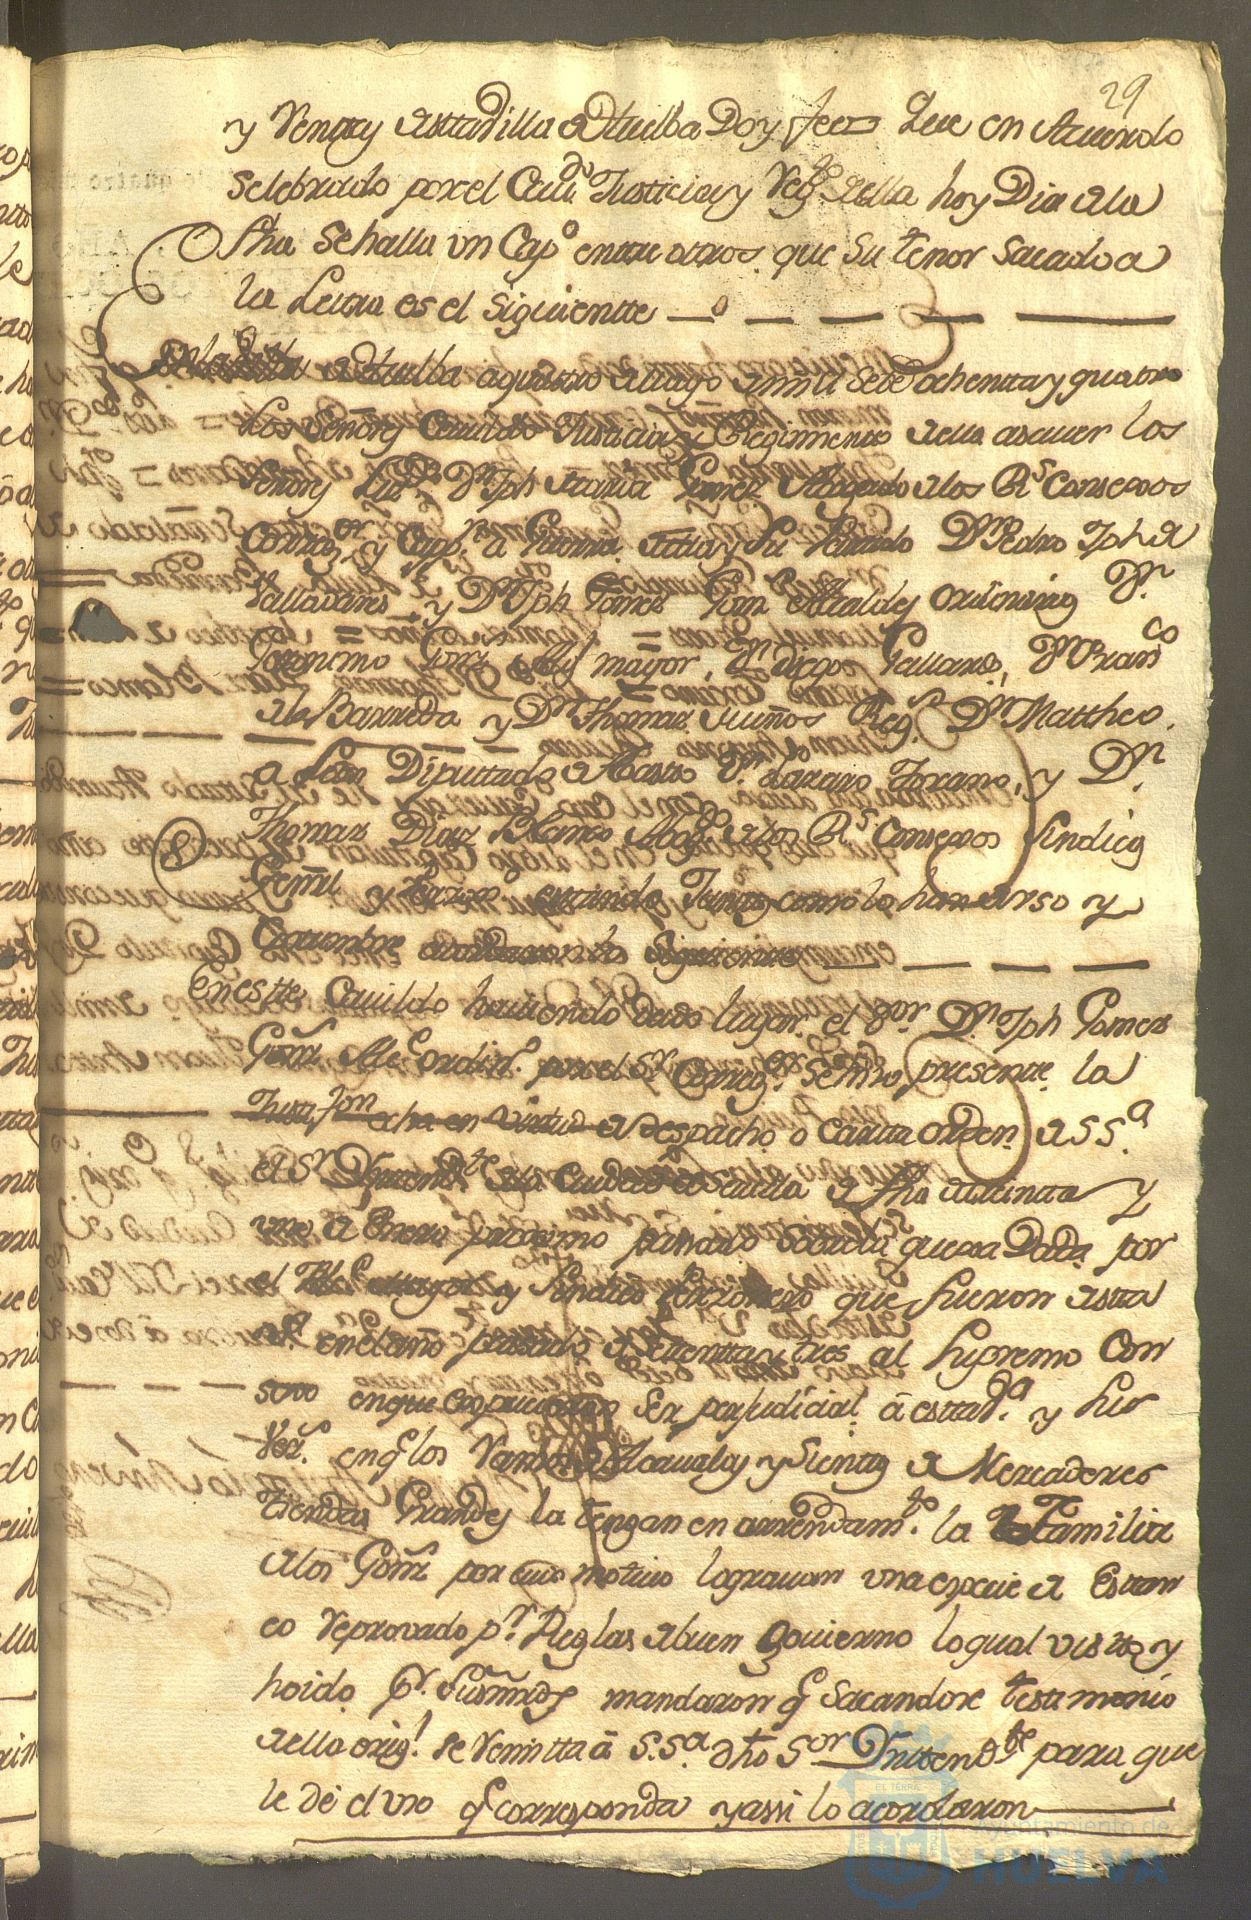 29
y Rentas estta Villa de Huelba Doy fee Que en Acuerdo
Selebrado por el Cavdo Justicia y Regto della hoy Dia de la
fha Sehalla un Capo entre otros que Su tenor Sacado a
la Letra es el Siguientte
de Huelba a quattro de Mayo de mil Settes ochentta y quatro
los Señores Cavildo Justicia y Regimiento della asauer los
Señores Lizdo Dn Jph Maria Gomez Abogado de los Rs Consexos
Corregor y Cappn a Guerra della y Su Dn Pedro Jph de
Valladares, y Dn Jph Gomez Alcaldes Ordinarios Dn
Geronimo mayor, Dn diego Dn Franco
de la Barreda y Dn Thomas Muños Regs Dn Mattheo
de Leon Diputtado de Abasto Dn Lazaro y Dn
Thomas Diaz Blanco Abogdo de los Rs Consexos Sindico
Genrl y estando Junttos como lo han de Uso y
Costumbre acordaron lo Siguientte
En estte Cavildo haviendo dado lugar el Sor Dn Jph Gomez
Alce ordino por el Sr Corregor se hizo presente la
Justifon echa en Virtud de despacho o Cartta orden de S Sa
el Sr Yntendte de la Ciudad de Sevilla de fha de treinta y
uno de Enero proximo passado Sobre la quexa Dada por
el y Sindico Personero que fueron de estta
en el año passado de ochentta y tres al Supremo Con
sexo en que expusieron Ser perjudicial á estta Va y Sus
Vezs en q los Ramos de Alcavalas y Sientos de Mercaderes
tiendas Grandes la tengan en arrendamto la Familia
de los por cuio motivo logravan una espezie de Estan
co reprovado pr Reglas de buen Govierno lo qual visto y
hoido pr Susmrds mandaron q Sacandose testimonio
della origl se remitta á S. Sa dho Sor Yntendte para que
le dé el uso q corresponda y assi lo acordaron
Ayuntamiento de
HUELVA